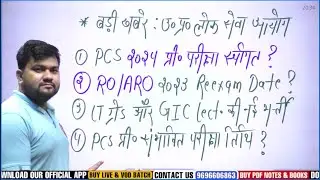 * बड़ी खबर : उ० प्र० लोक सेवा आयोग
① PCS २०२४ प्री० परीक्षा स्थगित ?
② RO/ARO २०२३ Reexam Date ?
③ LT ग्रेड और GIC lect. की नई भर्ती
④ PCS प्री० संभावित परीक्षा तिथि ?
WNLOAD OUR OFFICIAL APP BUY LIVE & VOD BATCH CONTACT US 9696606863 BUY PDF NOTES & BOOKS DO